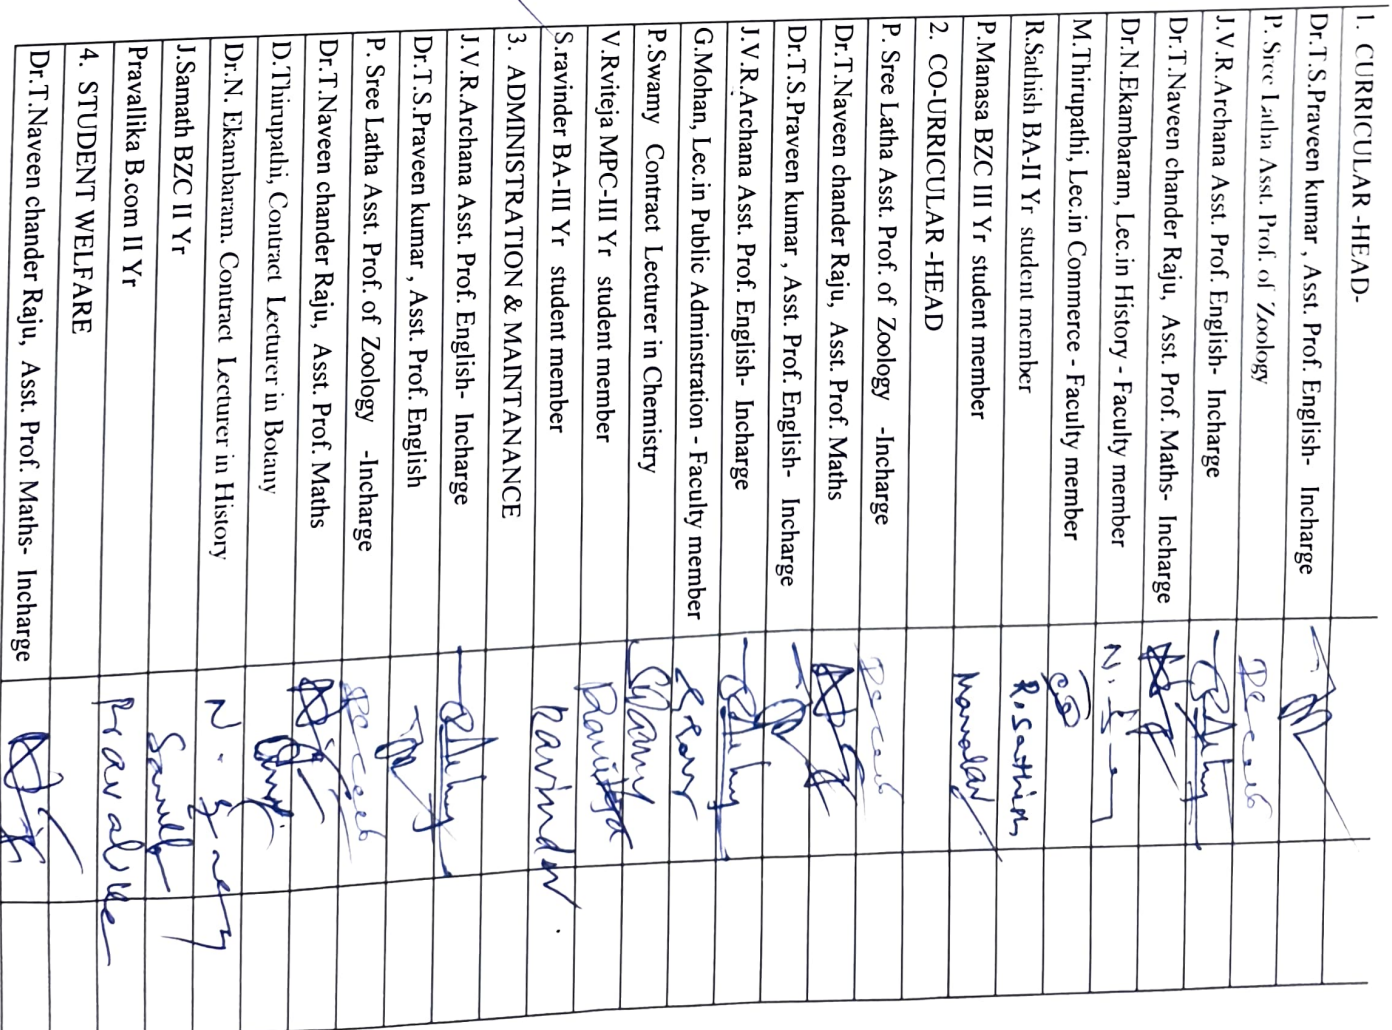 1. CURRICULAR -HEAD-
Dr.T.S.Praveen kumar , Asst. Prof. English- Incharge
P. Sree Latha Asst. Prof. of Zoology
J.V.R.Archana Asst. Prof. English- Incharge
Dr.T.Naveen chander Raju, Asst. Prof. Maths- Incharge
Dr.N.Ekambaram, Lec.in History - Faculty member
M.Thirupathi, Lec.in Commerce - Faculty member
R.Sathish BA-II Yr student member R.Sathish
P.Manasa BZC III Yr student member
2. CO-URRICULAR -HEAD
P. Sree Latha Asst. Prof. of Zoology -Incharge
Dr.T.Naveen chander Raju, Asst. Prof. Maths
Dr.T.S.Praveen kumar , Asst. Prof. English- Incharge
J.V.R.Archana Asst. Prof. English- Incharge
G.Mohan, Lec.in Public Adminstration - Faculty member
P.Swamy Contract Lecturer in Chemistry Swamy
V.Rviteja MPC-III Yr student member Raviteja
S.ravinder BA-III Yr student member Ravinder
3. ADMINISTRATION & MAINTANANCE
J.V.R.Archana Asst. Prof. English- Incharge
Dr.T.S.Praveen kumar , Asst. Prof. English
P. Sree Latha Asst. Prof. of Zoology -Incharge
Dr.T.Naveen chander Raju, Asst. Prof. Maths
D.Thirupathi, Contract Lecturer in Botany
Dr.N. Ekambaram. Contract Lecturer in History
J.Samath BZC II Yr
Pravallika B.com II Yr Pravalika
4. STUDENT WELFARE
Dr.T.Naveen chander Raju, Asst. Prof. Maths- Incharge